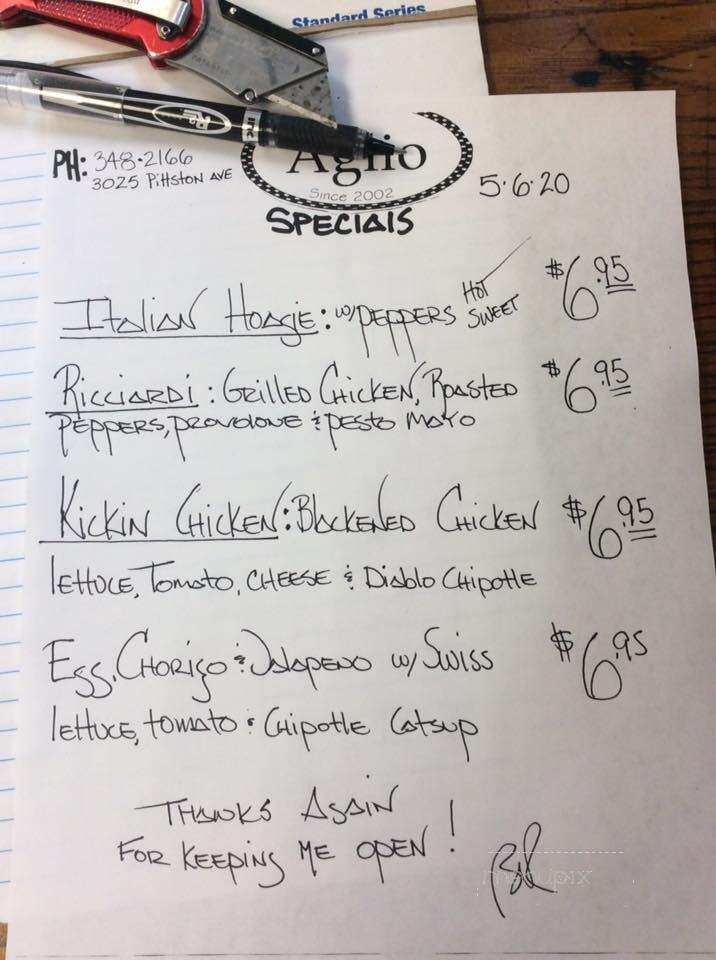 Standard Series
PH: 348·2166
3025 Pittston Ave
Aglio
Since 2002
5·6·20
Specials
Italian Hoagie: w/peppers Hot Sweet $6.95
Ricciardi: Grilled Chicken, Roasted $6.95
Peppers, provolone & pesto mayo
Kickin Chicken: Blackened Chicken $6.95
lettuce, Tomato, cheese & Diablo Chipotle
Egg, Chorizo & Jalapeno w/ Swiss $6.95
lettuce, tomato & Chipotle Catsup
Thanks Again
For keeping me open!
menupix